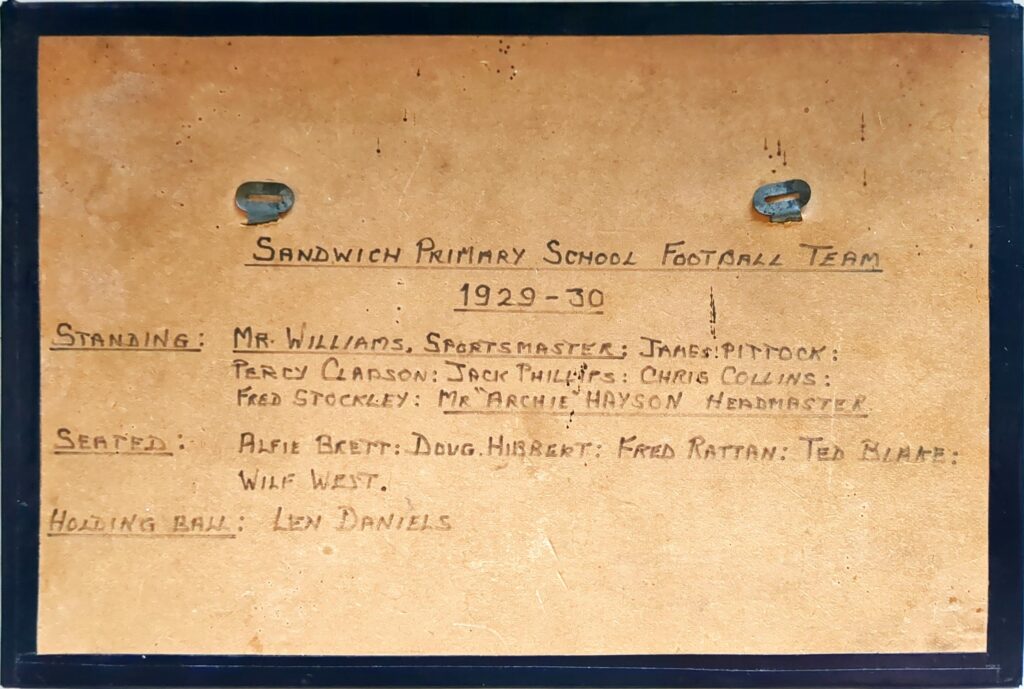 SANDWICH PRIMARY SCHOOL FOOTBALL TEAM
1929-30
STANDING: MR. WILLIAMS, SPORTSMASTER: JAMES PITTOCK:
PERCY CLAPSON: JACK PHILLIPS: CHRIS COLLINS:
FRED STOCKLEY: MR "ARCHIE" HAYSON HEADMASTER
SEATED: ALFIE BRETT: DOUG. HIBBERT: FRED RATTAN: TED BLAKE:
WILF WEST.
HOLDING BALL: LEN DANIELS